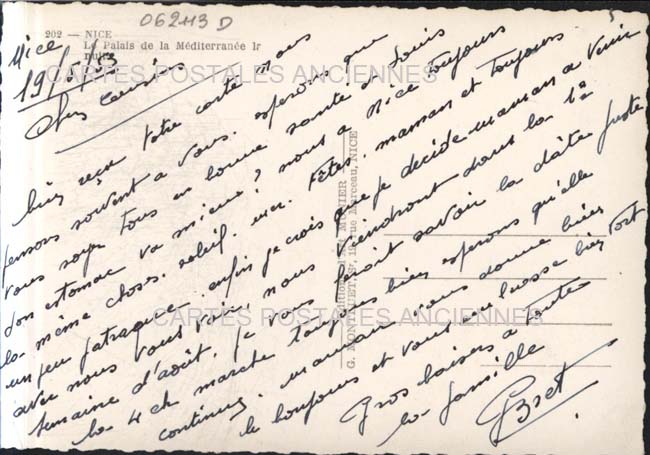 062413 D
202 — NICE
Le Palais de la Méditerranée
nuit
Nice
19/5/53
Chers Cousins
bien reçu votre carte nous
pensons souvent a vous. esperons que
vous soyez tous en bonne santé et Louis
don estomac va mieux? nous a Nice toujours
la même choses. soleil. mer. Fêtes. maman et toujours
un peu patraque. enfin je crois que je decide maman a venir
avec nous vous voir, nous viendront dans la 1e
semaine d'août. je vous ferait savoir la dâte juste
la 4 ch marche toujours bien esperons qu'elle
continue. maman vous donne bien
le bonjour et vous embrasse bien fort
Gros baisers a toute
la famille
Bret
G. MONTIGNY, 19, rue Marceau, NICE
CARTES POSTALES ANCIENNES
CARTES POSTALES ANCIENNES